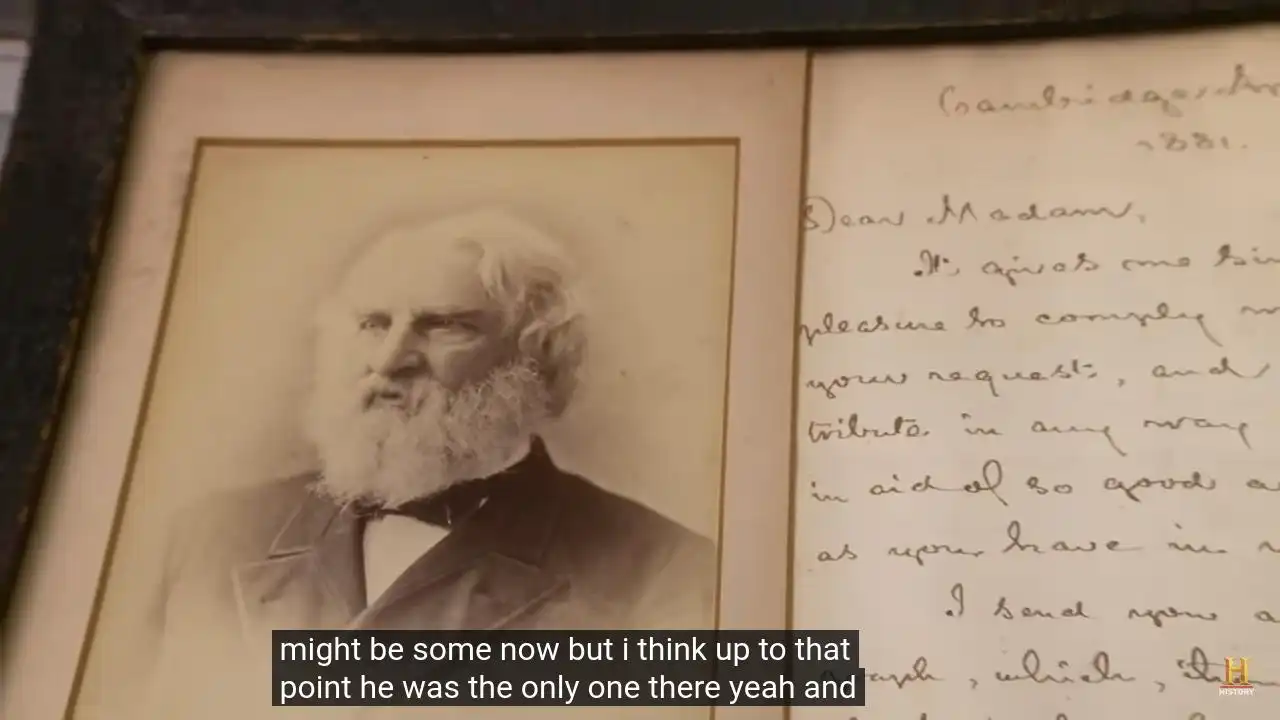 Cambridge
1881.
Dear Madam,
It gives me
pleasure to comply
your request, and
tribute in any way
in aid of so good
as you have in
I send you a
graph, which,
might be some now but i think up to that
point he was the only one there yeah and
H
HISTORY